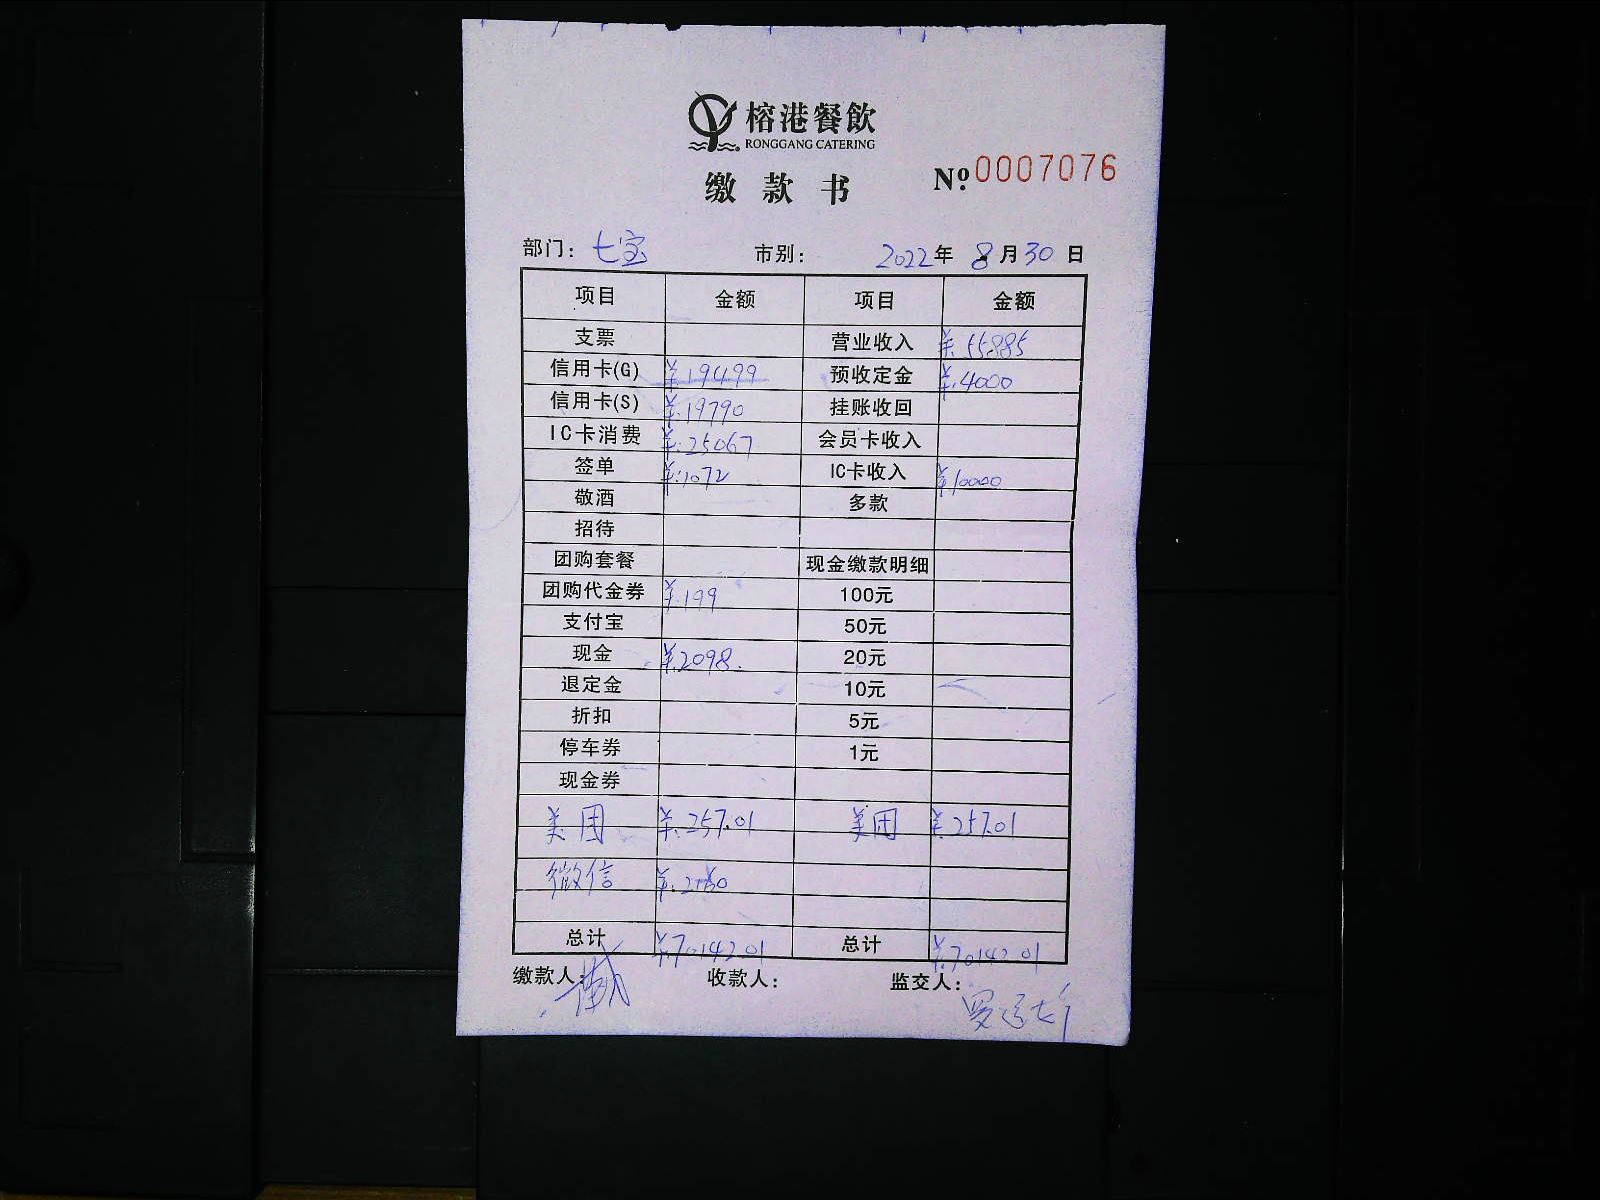 榕港餐飲
RONGGANG CATERING
缴款书
No.0007076
部门：七宝 市别： 2022年 8月30日
项目 金额 项目 金额
支票 营业收入 ¥:55885
信用卡(G) ¥:19499 预收定金 ¥:4000
信用卡(S) ¥:19790 挂账收回
IC卡消费 ¥:25067 会员卡收入
签单 ¥:1072 IC卡收入 ¥:10000
敬酒 多款
招待
团购套餐 现金缴款明细
团购代金券 ¥:199 100元
支付宝 50元
现金 ¥:2098. 20元
退定金 10元
折扣 5元
停车券 1元
现金券
美团 ¥:257.01 美团 ¥:257.01
微信 ¥:2160
总计 ¥:70142.01 总计 ¥:70142.01
缴款人： 收款人： 监交人：